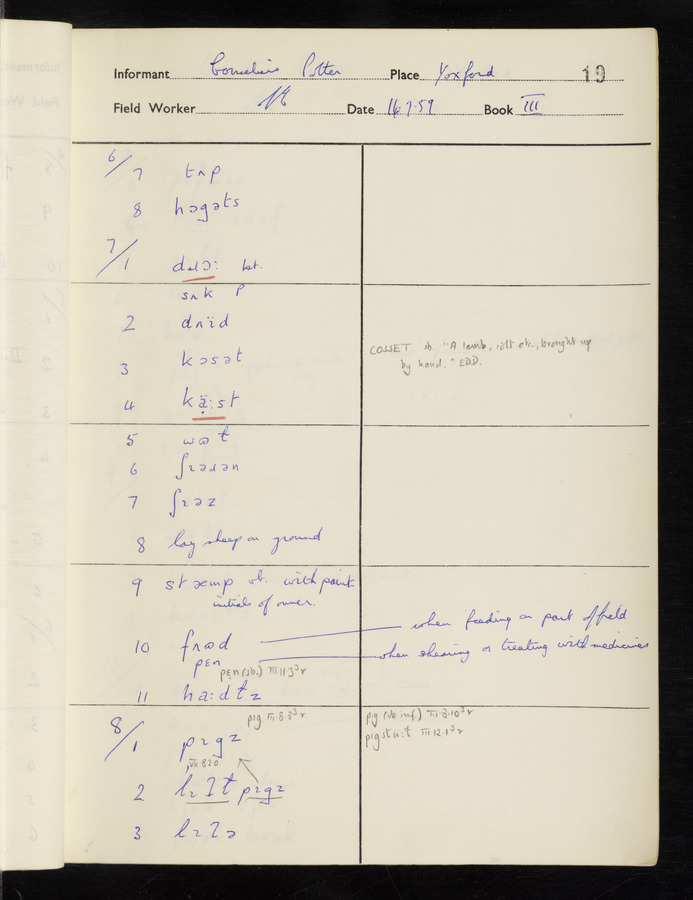 Informant Cornelius Potter Place Yoxford 19
Field Worker Date 14.7.59 Book III
6/7 tʌp
8 hɔgəts
7/1 lat.
sʌk P
2 dʌïd
3 kɔsət
COSSET sb. "A lamb, colt etc., brought up
by hand." EDD.
4 kạ̈:st
5 wɒt
6 ʃɪəɹən
7 ʃɪəz
8 lay sheep on ground
9 stæmp vb. with paint
initials of owner.
10 fʌɒd when feeding on part of field
pɛn when shearing or treating with medicines
pɛn (sb.) III.11.3³r
11 ha:dtz
pɪg III.8.8³r
pɪg (vb inf.) III.8.10³r
8/1 pɪgz
pɪgstü:t III.12.1³r
VII.8.20
2 lɪʔt pɪgz
3 lɪʔə